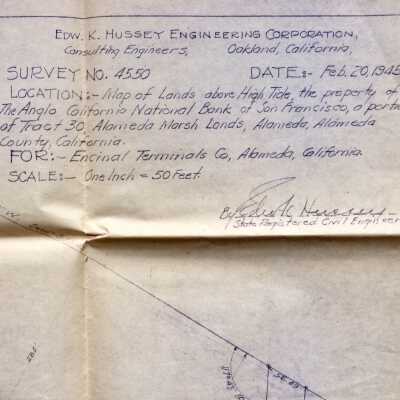 EDW. K. HUSSEY ENGINEERING CORPORATION,
Consulting Engineers, Oakland, California,
SURVEY NO. 4550 DATE:- Feb. 20, 1945
LOCATION:- Map of Lands above High Tide, the property of
The Anglo California National Bank of San Francisco, a portio
of Tract 30, Alameda Marsh Lands, Alameda, Alameda
County, California.
FOR:- Encinal Terminals Co, Alameda, California.
SCALE:- One Inch = 50 Feet.
By Edw K Hussey
State Registered Civil Engineer
W